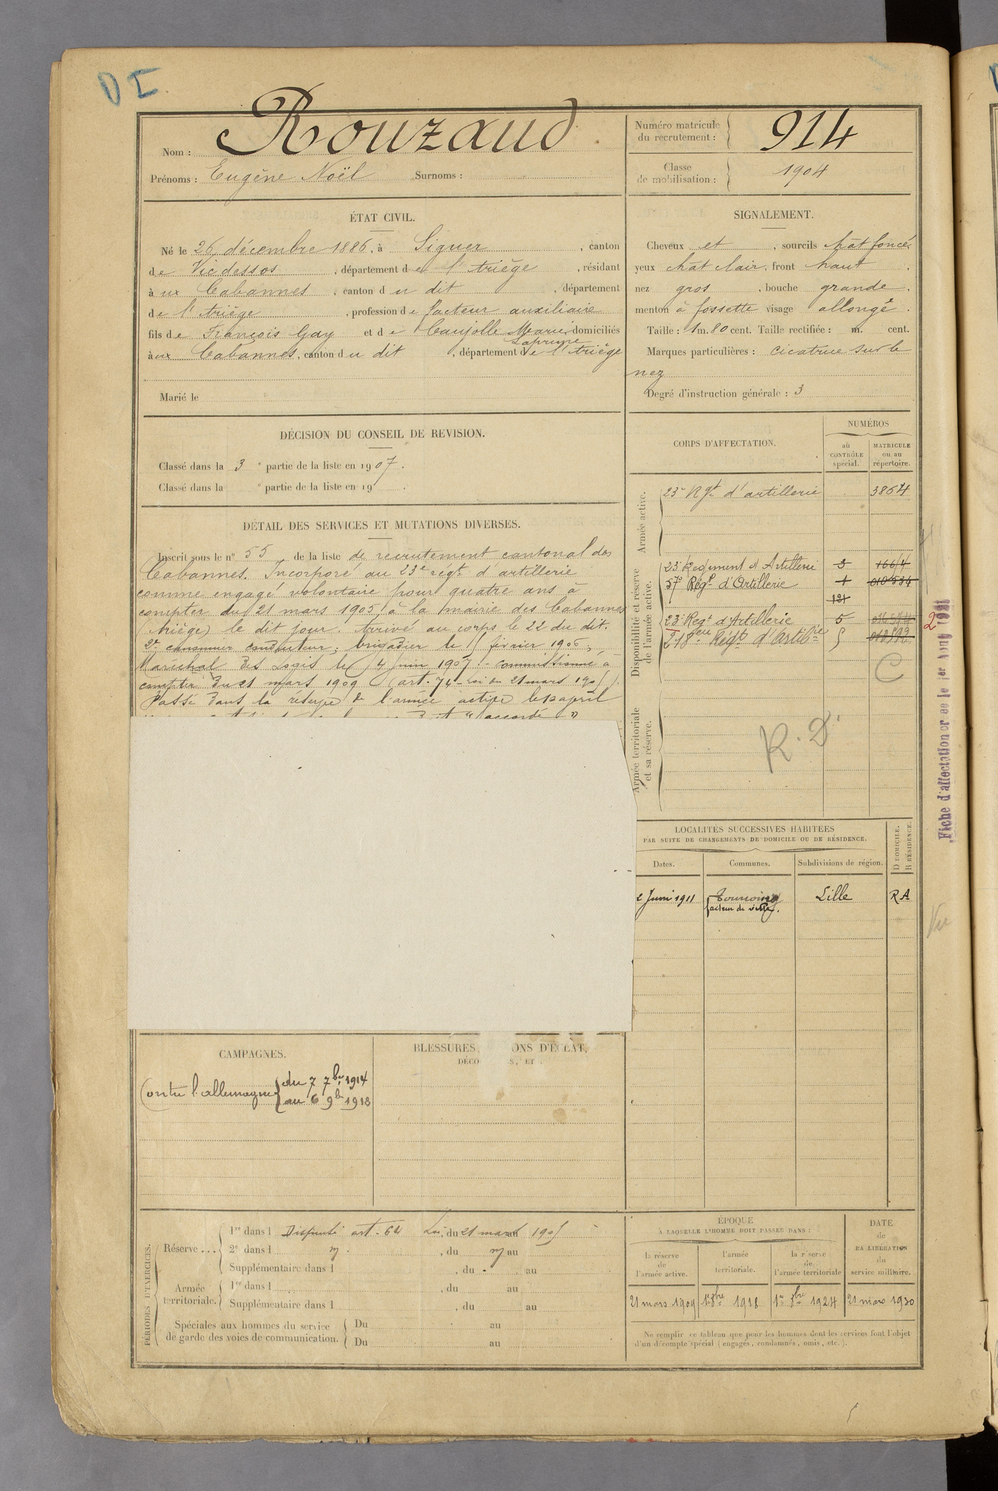 DI
Nom : Rouzaud
Prénoms : Eugène Noël Surnoms :
Numéro matricule du recrutement : 914
Classe de mobilisation : 1904
ÉTAT CIVIL.
Né le 26 décembre 1886, à Siguer, canton
de Vicdessos, département de l'Ariège, résidant
à ux Cabannes, canton du dit, département
de l'Ariège, profession de facteur auxiliaire
fils de François Gay et de Caujolle Marie Laprune domiciliés
à aux Cabannes, canton du dit, département de l'Ariège
Marié le
SIGNALEMENT.
Cheveux et, sourcils chat foncés
yeux chat clair, front haut.
nez gros, bouche grande.
menton à fossette visage allongé.
Taille : 1 m. 80 cent. Taille rectifiée : m. cent.
Marques particulières : cicatrice sur le
nez
Degré d'instruction générale : 3
DÉCISION DU CONSEIL DE REVISION.
Classé dans la 3e partie de la liste en 1907.
Classé dans la e partie de la liste en 19 .
CORPS D'AFFECTATION.
NUMÉROS
au CONTRÔLE spécial.
MATRICULE ou au répertoire.
Armée active.
23e Rgt d'artillerie 3864
Disponibilité et réserve de l'armée active.
23e Régiment d'Artillerie 5 1664
57e Régt d'Artillerie 1
131
23e Régt d'Artillerie 5
218eme Régt d'Artillerie 5
C
Armée territoriale et sa réserve.
R.D.
DÉTAIL DES SERVICES ET MUTATIONS DIVERSES.
Inscrit sous le n° 55 de la liste de recrutement cantonal des
Cabannes. Incorporé au 23e régt d'artillerie
comme engagé volontaire pour quatre ans à
compter du 21 mars 1905, à la mairie des Cabannes
(Ariège) le dit jour. Arrivé au corps le 22 du dit.
2e canonnier conducteur, brigadier le février 1906,
Maréchal des Logis le 4 juin 1907. commissionné à
compter du 21 mars 1909 (art. 74 - loi du 21 mars 1905).
Passé dans la réserve de l'armée active le avril
"accordé"
LOCALITÉS SUCCESSIVES HABITÉES
PAR SUITE DE CHANGEMENTS DE DOMICILE OU DE RÉSIDENCE.
Dates. Communes. Subdivisions de région. D DOMICILE. R RÉSIDENCE.
2 Juin 1911 Tourcoing Lille RA
facteur de ville.
Fiche d'affectation créée le 1er Août 1921
Vu
CAMPAGNES.
Contre l'allemagne du 7 7bre 1914
au 6 9bre 1918
BLESSURES, ONS D'ÉCLAT,
DÉCO S, ET
PÉRIODES D'EXERCICES.
Réserve ... 1re dans l Dispensé art. 64 Loi, du 21 mars 1905
2e dans l , du au
Supplémentaire dans l , du au
Armée territoriale. 1re dans l , du au
Supplémentaire dans l , du au
Spéciales aux hommes du service de garde des voies de communication. Du au
Du au
ÉPOQUE
À LAQUELLE L'HOMME DOIT PASSER DANS :
la réserve de l'armée active.
l'armée territoriale.
la réserve de l'armée territoriale
DATE de LA LIBÉRATION du service militaire.
21 mars 1909 1er 8bre 1918 1er 8bre 1924 21 mars 1930
Ne remplir ce tableau que pour les hommes dont les services font l'objet
d'un décompte spécial (engagés, condamnés, omis, etc.).